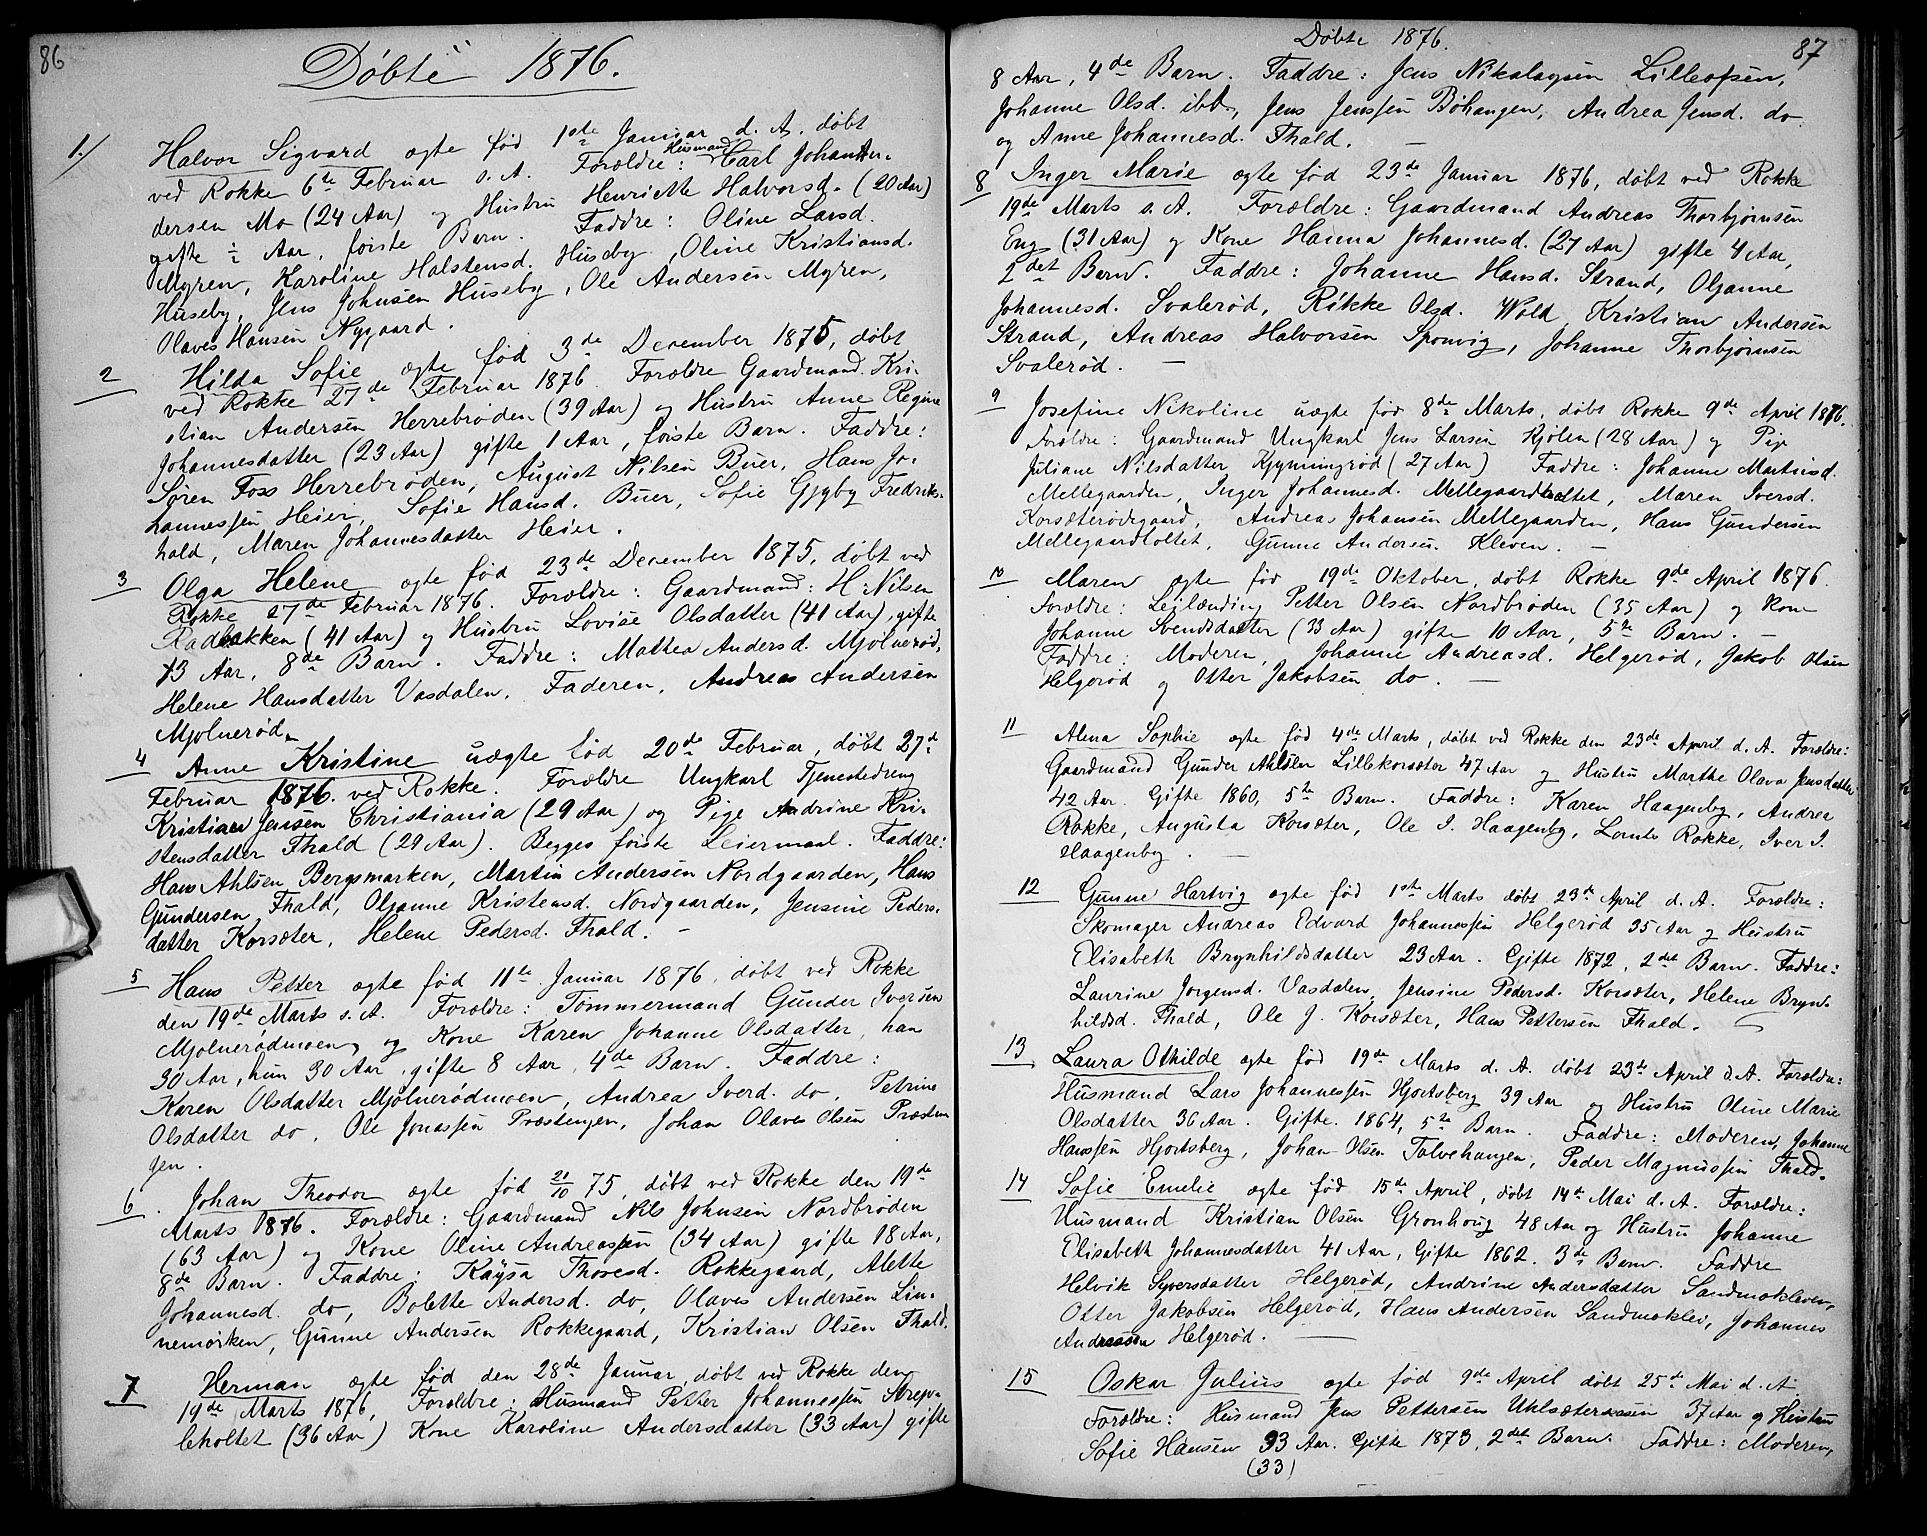 86
Döbte 1876.
1./ Halvor Sigvard ægte fød 1ste Januar d. A. døbt
ved Rokke 6te Februar s. A. Forældre: Husmand Carl Johan An-
dersen Mo (24 Aar) og Hustru Henriette Halvorsd. (20 Aar)
gifte ½ Aar, første Barn. Faddre: Oline Larsd.
Myren, Karoline Halstensd. Huseby, Oline Kristiansd.
Huseby, Jens Johnsen Huseby, Ole Andersen Myren,
Olaves Hansen Nygaard.
2 Hilda Sofie ægte fød 3de December 1875, døbt
ved Rokke 27de Februar 1876. Forældre Gaardmand Kri-
stian Andersen Herrebrøden (39 Aar) og Hustru Anne Regine
Johannesdatter (23 Aar) gifte 1 Aar, første Barn. Faddre:
Søren Foss Herrebrøden, August Nilsen Buer, Hans Jo-
hannessen Heier, Sofie Hansd. Buer, Sofie Gjøby Fredriks-
hald, Maren Johannesdatter Heier.
3 Olga Helene ægte fød 23de December 1875, døbt ved
Rokke 27de Februar 1876. Forældre: Gaardmand: H. Nilsen
Radbakken (41 Aar) og Hustru Lovise Olsdatter (41 Aar), gifte
13 Aar, 8de Barn. Faddre: Mathea Andersd. Mjølnerød,
Helene Hansdatter Vasdalen, Faderen, Andreas Andersen
Mjølnerød.
4 Anne Kristine uægte fød 20de Februar, døbt 27de
Februar 1876. ved Rokke. Forældre Ungkarl Tjenestedreng
Kristian Jensen Christiania (29 Aar) og Pige Andrine Kri-
stensdatter Thald (29 Aar). Begges første Leiermaal. Faddre:
Hans Ahlsen Bergsmarken, Martin Andersen Nordgaarden, Hans
Gundersen Thald, Oljanne Kristensd. Nordgaarden, Jensine Peders-
datter Korsæter, Helene Pedersd. Thald. -
5 Hans Petter ægte fød 11te Januar 1876, døbt ved Rokke
den 19de Marts s. A. Forældre: Tømmermand Gunder Iversen
Mjølnerødmoen og Kone Karen Johanne Olsdatter, han
30 Aar, hun 30 Aar, gifte 8 Aar, 4de Barn. Faddre:
Karen Olsdatter Mjølnerødmoen, Andrea Iverd. do, Petrine
Olsdatter do, Ole Jonassen Præstengen, Johan Olaves Olsen Præsten-
gen.
6 Johan Theodor ægte fød 21/10 75, døbt ved Rokke den 19de
Marts 1876. Forældre: Gaardmand Nils Johnsen Nordbrøden
(63 Aar) og Kone Oline Andreassen (34 Aar) gifte 18 Aar,
8de Barn. Faddre: Kaysa Thoresd. Rokkegaard, Alette
Johannesd. do, Bolette Andersd. do, Olaves Andersen Lin-
nemørken, Gunne Andersen Rokkegaard, Kristian Olsen Thald.
7 Herman ægte fød den 28de Januar, døbt ved Rokke den
19de Marts 1876, Forældre: Husmand Petter Johannessen Strep-
leholtet (36 Aar) Kone Karoline Andersdatter (33 Aar) gifte
Døbte 1876.
87
8 Aar, 4de Barn. Faddre: Jens Nikolaysen Lilleøsen,
Johanne Olsd. ibd, Jens Jenssen Bøhaugen, Andrea Jensd. do
og Anne Johannesd. Thald. —
8 Inger Marie ægte fød 23de Januar 1876, døbt ved Rokke
19de Marts s. A. Forældre: Gaardmand Andreas Thorbjørnsen
Eng (31 Aar) og Kone Hanna Johannesd. (27 Aar) gifte 4 Aar,
2det Barn. Faddre: Johanne Hansd. Strand, Oljanne
Johannesd. Svalerød, Rikke Olsd. Wold, Kristian Andersen
Strand, Andreas Halvorsen Sponvig, Johanne Thorbjørnsen
Svalerød. —
9 Josefine Nikoline uægte fød 8de Marts, døbt Rokke 9de April 1876.
Forældre: Gaardmand Ungkarl Jens Larsen Kjølen (28 Aar) og Pige
Juliane Nilsdatter Kjynningrød (27 Aar) Faddre: Johanne Martinsd.
Mellegaarden, Inger Johannesd. Mellegaardholtet, Maren Iversd.
Korsæterødegaard, Andreas Johansen Mellegaarden, Hans Gundersen
Mellegaardholtet, Gunne Andersen Kleven. —
10 Maren ægte fød 19de Oktober, døbt Rokke 9de April 1876.
Forældre: Leilænding Petter Olsen Nordbrøden (35 Aar) og Kone
Johanne Svendsdatter (33 Aar) gifte 10 Aar, 5te Barn. —
Faddre: Moderen, Johanne Andreasd. Helgerød, Jakob Olsen
Helgerød og Otter Jakobsen do. —
11 Alma Sophie ægte fød 4de Marts, døbt ved Rokke den 23de April d. A. Forældre:
Gaardmand Gunder Ahlsen Lillekorsæter 47 Aar og Hustru Marthe Olava Jensdatter
42 Aar. Gifte 1860, 5te Barn. Faddre: Karen Haagenby, Andrea
Rokke, Augusta Korsæter, Ole I. Haagenby, Lornts Rokke, Iver I.
Haagenby. —
12 Gunne Hartvig ægte fød 1ste Marts døbt 23de April d. A. Forældre:
Skomager Andreas Edvard Johannessen Helgerød 35 Aar og Hustru
Elisabeth Brynhildsdatter 23 Aar. Gifte 1872, 2det Barn. Faddre:
Laurine Jørgensd. Vasdalen, Jensine Pedersd. Korsæter, Helene Bryn-
hildsd. Thald, Ole J. Korsæter, Hans Pettersen Thald.
13 Laura Othilde ægte fød 19de Marts d. A. døbt 23de April d. A. Forældre:
Husmand Lars Johannessen Hjortsberg 39 Aar og Hustru Oline Marie
Olsdatter 36 Aar. Gifte. 1864, 5te Barn. Faddre: Moderen, Johanne
Hanssen Hjortsberg, Johan Olsen Talvehaugen, Peder Magnussen Thald.
14 Sofie Emelie ægte fød 15de April, døbt 14de Mai d. A. Forældre:
Husmand Kristian Olsen Grønhoug 48 Aar og Hustru Johanne
Elisabeth Johannesdatter 41 Aar, Gifte 1862. 3de Barn. Faddre
Helvik Syversdatter Helgerød, Andrine Andersdatter Sandmokleven,
Otter Jakobsen Helgerød, Hans Andersen Sandmoklev, Johannes
Andreassen Helgerød. —
15 Oskar Julius ægte fød 9de April døbt 25de Mai d. A.
Forældre: Husmand Jens Pettersen Uhlsæteraasen 37 Aar og Hustru
Sofie Hansen 33 Aar. Gifte 1873, 2det Barn. Faddre: Moderen,
(33)